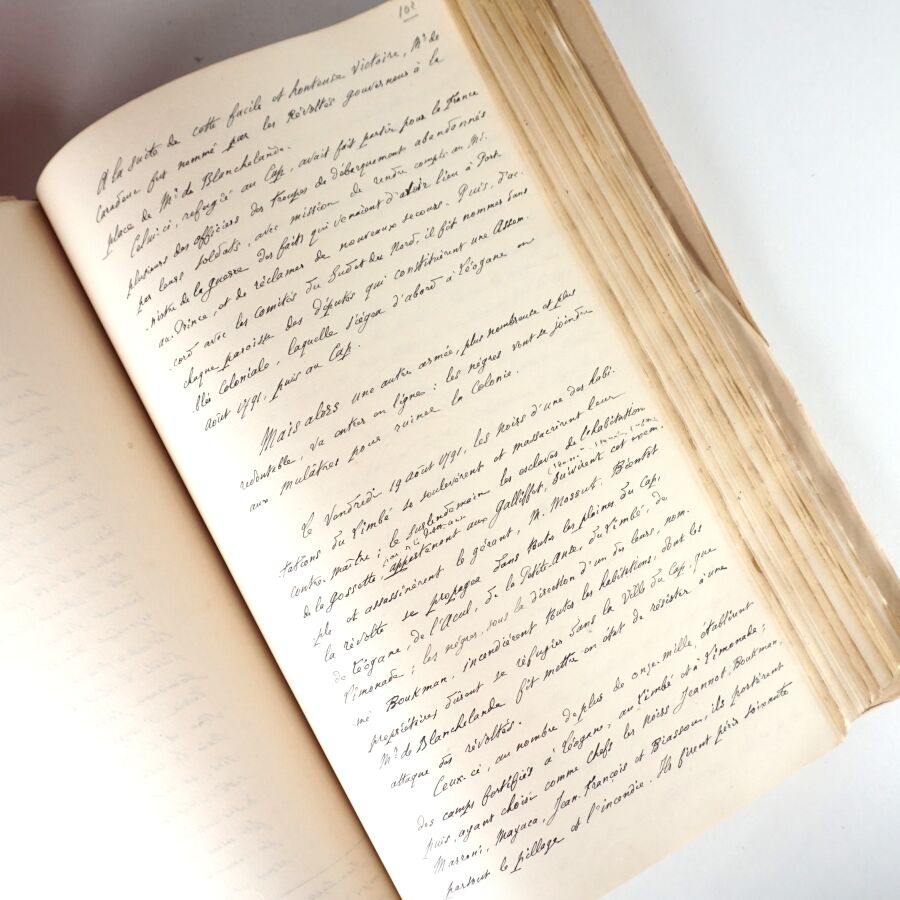 102
A la suite de cette facile et honteuse victoire, Mr. de
Caradeux fut nommé par les Révoltés gouverneur à la
place de Mr. de Blanchelande.
Celui-ci, refugié au Cap, avait fait partir pour la France
plusieurs des officiers des troupes de débarquement abandonnés
par leurs soldats, avec mission de rendre compte au Mi-
nistre de la guerre des faits qui venaient d'avoir lieu à Port-
au-Prince, et de réclamer de nouveaux secours. Puis, d'ac-
cord avec les Comités du Sud et du Nord, il fit nommer dans
chaque paroisse des députés qui constituèrent une Assem-
blée Coloniale, laquelle siégea d'abord à Léogane en
Août 1791, puis au Cap.
Mais alors une autre armée, plus nombreuse et plus
redoutable, va entrer en ligne: les nègres vont se joindre
aux mulâtres pour ruiner la Colonie.
Le Vendredi 19 août 1791, les noirs d'une des habi-
tations du Limbé se soulevèrent et massacrèrent leur
contre-maître; le surlendemain les esclaves de l'habitation
de la Gossette, appartenant aux Galliffet, suivirent cet exem-
ple et assassinèrent le gérant, M. Mossut. Bientôt
la révolte se propagea dans toutes les plaines du Cap,
de Léogane, de l'Acul, de la Petite-Anse, du Limbé, de
Limonade; les nègres, sous la direction d'un des leurs, nom-
mé Boukman, incendièrent toutes les habitations, dont les
propriétaires durent se réfugier dans la Ville du Cap, que
Mr. de Blanchelande fit mettre en état de résister à une
attaque des révoltés.
Ceux-ci, au nombre de plus de onze mille, établirent
des camps fortifiés à Léogane, au Limbé et à Limonade;
puis, ayant choisi comme chefs les noirs Jeannot, Boukman,
Marroni, Mayaca, Jean-François et Biassou, ils portèrent
partout le pillage et l'incendie. Ils firent périr soixante